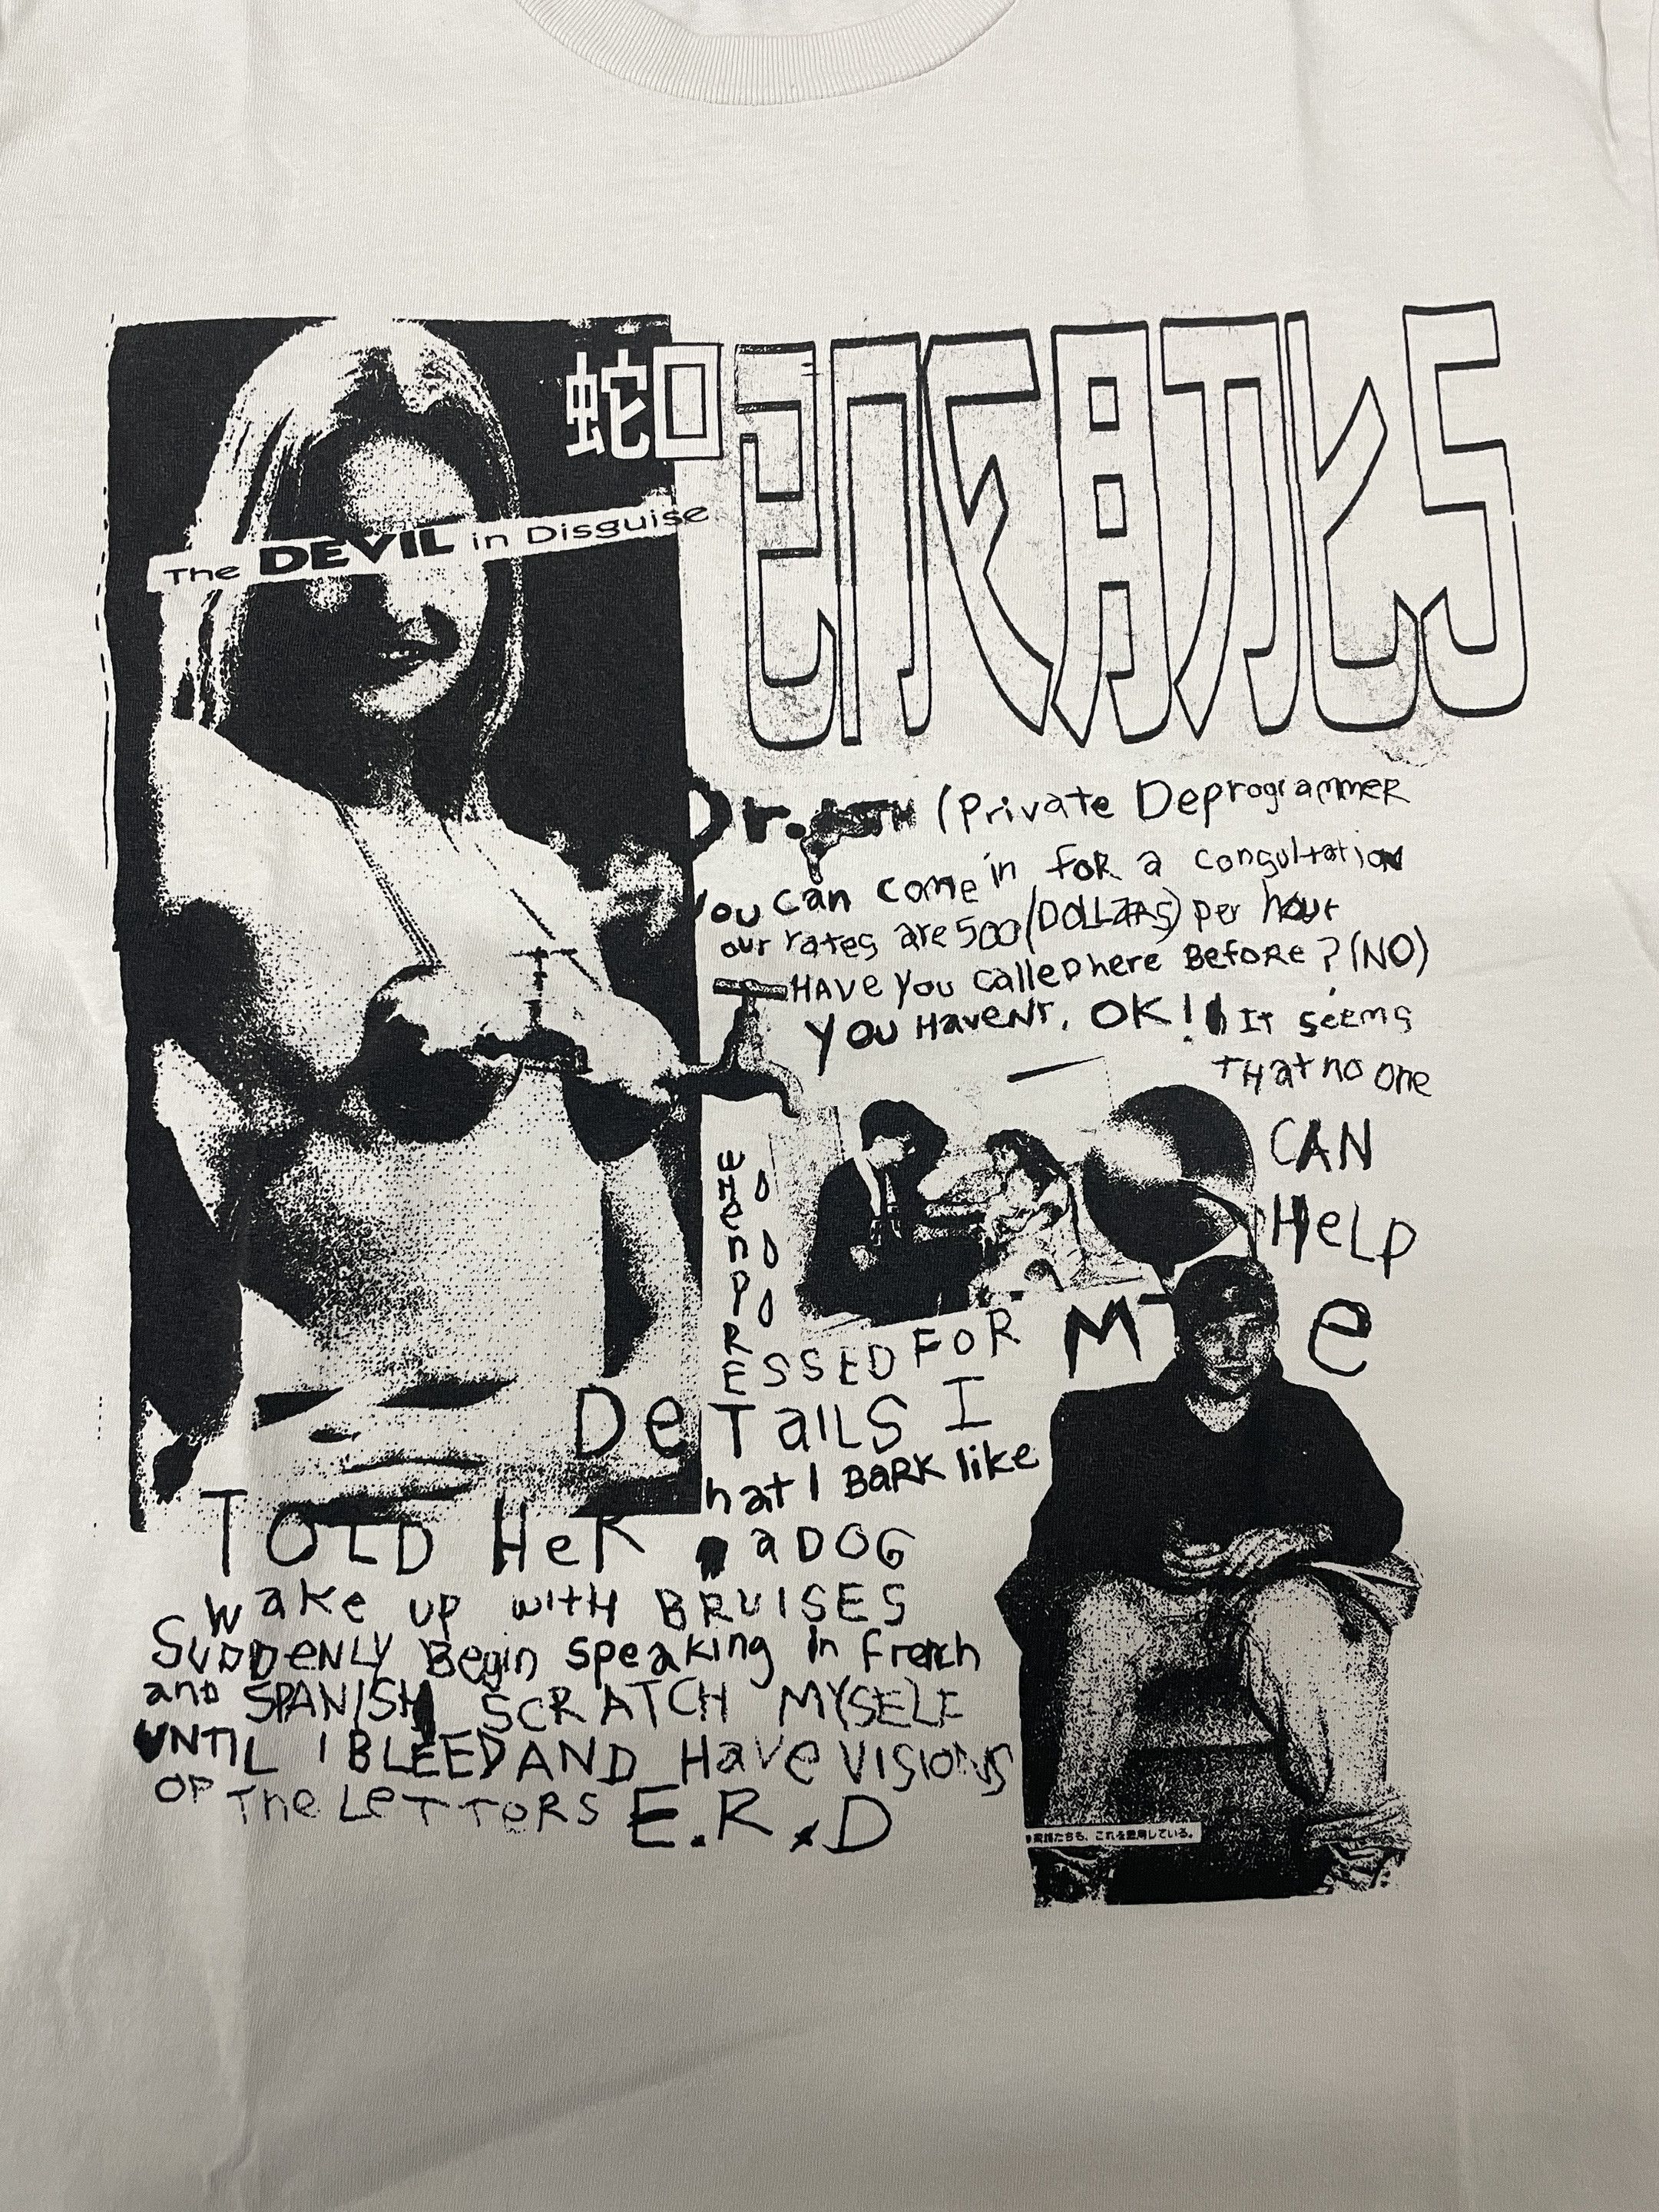 蛇口
The DEVIL in Disguise
Dr. (Private Deprogrammer
You can come in foR a congultation
our rates are 500 (DOLLARS) per hour
HAVe you calleD here BeFoRe? (NO)
you HaveNt, OK! It seems
THat no one
CAN
HeLp
Me
wHenpRESSED FOR
DeTaILS I
TOLD HeR
hat I BaRK like
a DOG
Wake up witH BRUISES
SuDDeNLy Begin speaking in french
anD SPANISH SCRATCH MYSELF
UNTIL I BLEED AND Have VISIONS
OF THe LeTTeRS E.R.D
たちも、これを愛用している。